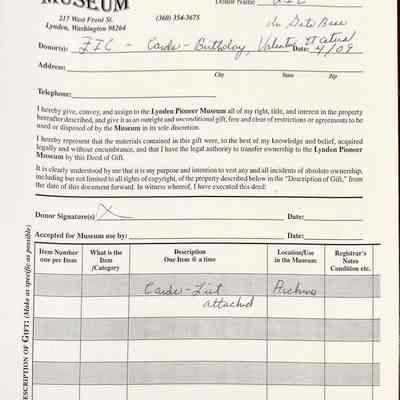 MUSEUM
Donor Name
217 West Front St. (360) 354-3675
Lynden, Washington 98264
In Data Base
Donor(s): FIC - Cards - Birthday, Valentine, Et Cetera Date: 4/09
Address:
City State Zip
Telephone:
I hereby give, convey, and assign to the Lynden Pioneer Museum all of my right, title, and interest in the property
hereafter described, and give it as an outright and unconditional gift; free and clear of restrictions or agreements to be
used or disposed of by the Museum in its sole discretion.
I hereby represent that the materials contained in this gift were, to the best of my knowledge and belief, acquired
legally and without encumbrance, and that I have the legal authority to transfer ownership to the Lynden Pioneer
Museum by this Deed of Gift.
It is clearly understood by use that it is my purpose and intention to vest any and all incidents of absolute ownership,
including but not limited to all rights of copyright, of the property described below in the "Description of Gift," from
the date of this document forward. In witness whereof, I have executed this deed:
Donor Signature(s) X Date:
Accepted for Museum use by: Date:
Item Number one per Item
What is the Item /Category
Description One Item @ a time
Location/Use in the Museum
Registrar's Notes Condition etc.
Cards - List Archives
attached
DESCRIPTION OF GIFT: (Make as specific as possible)